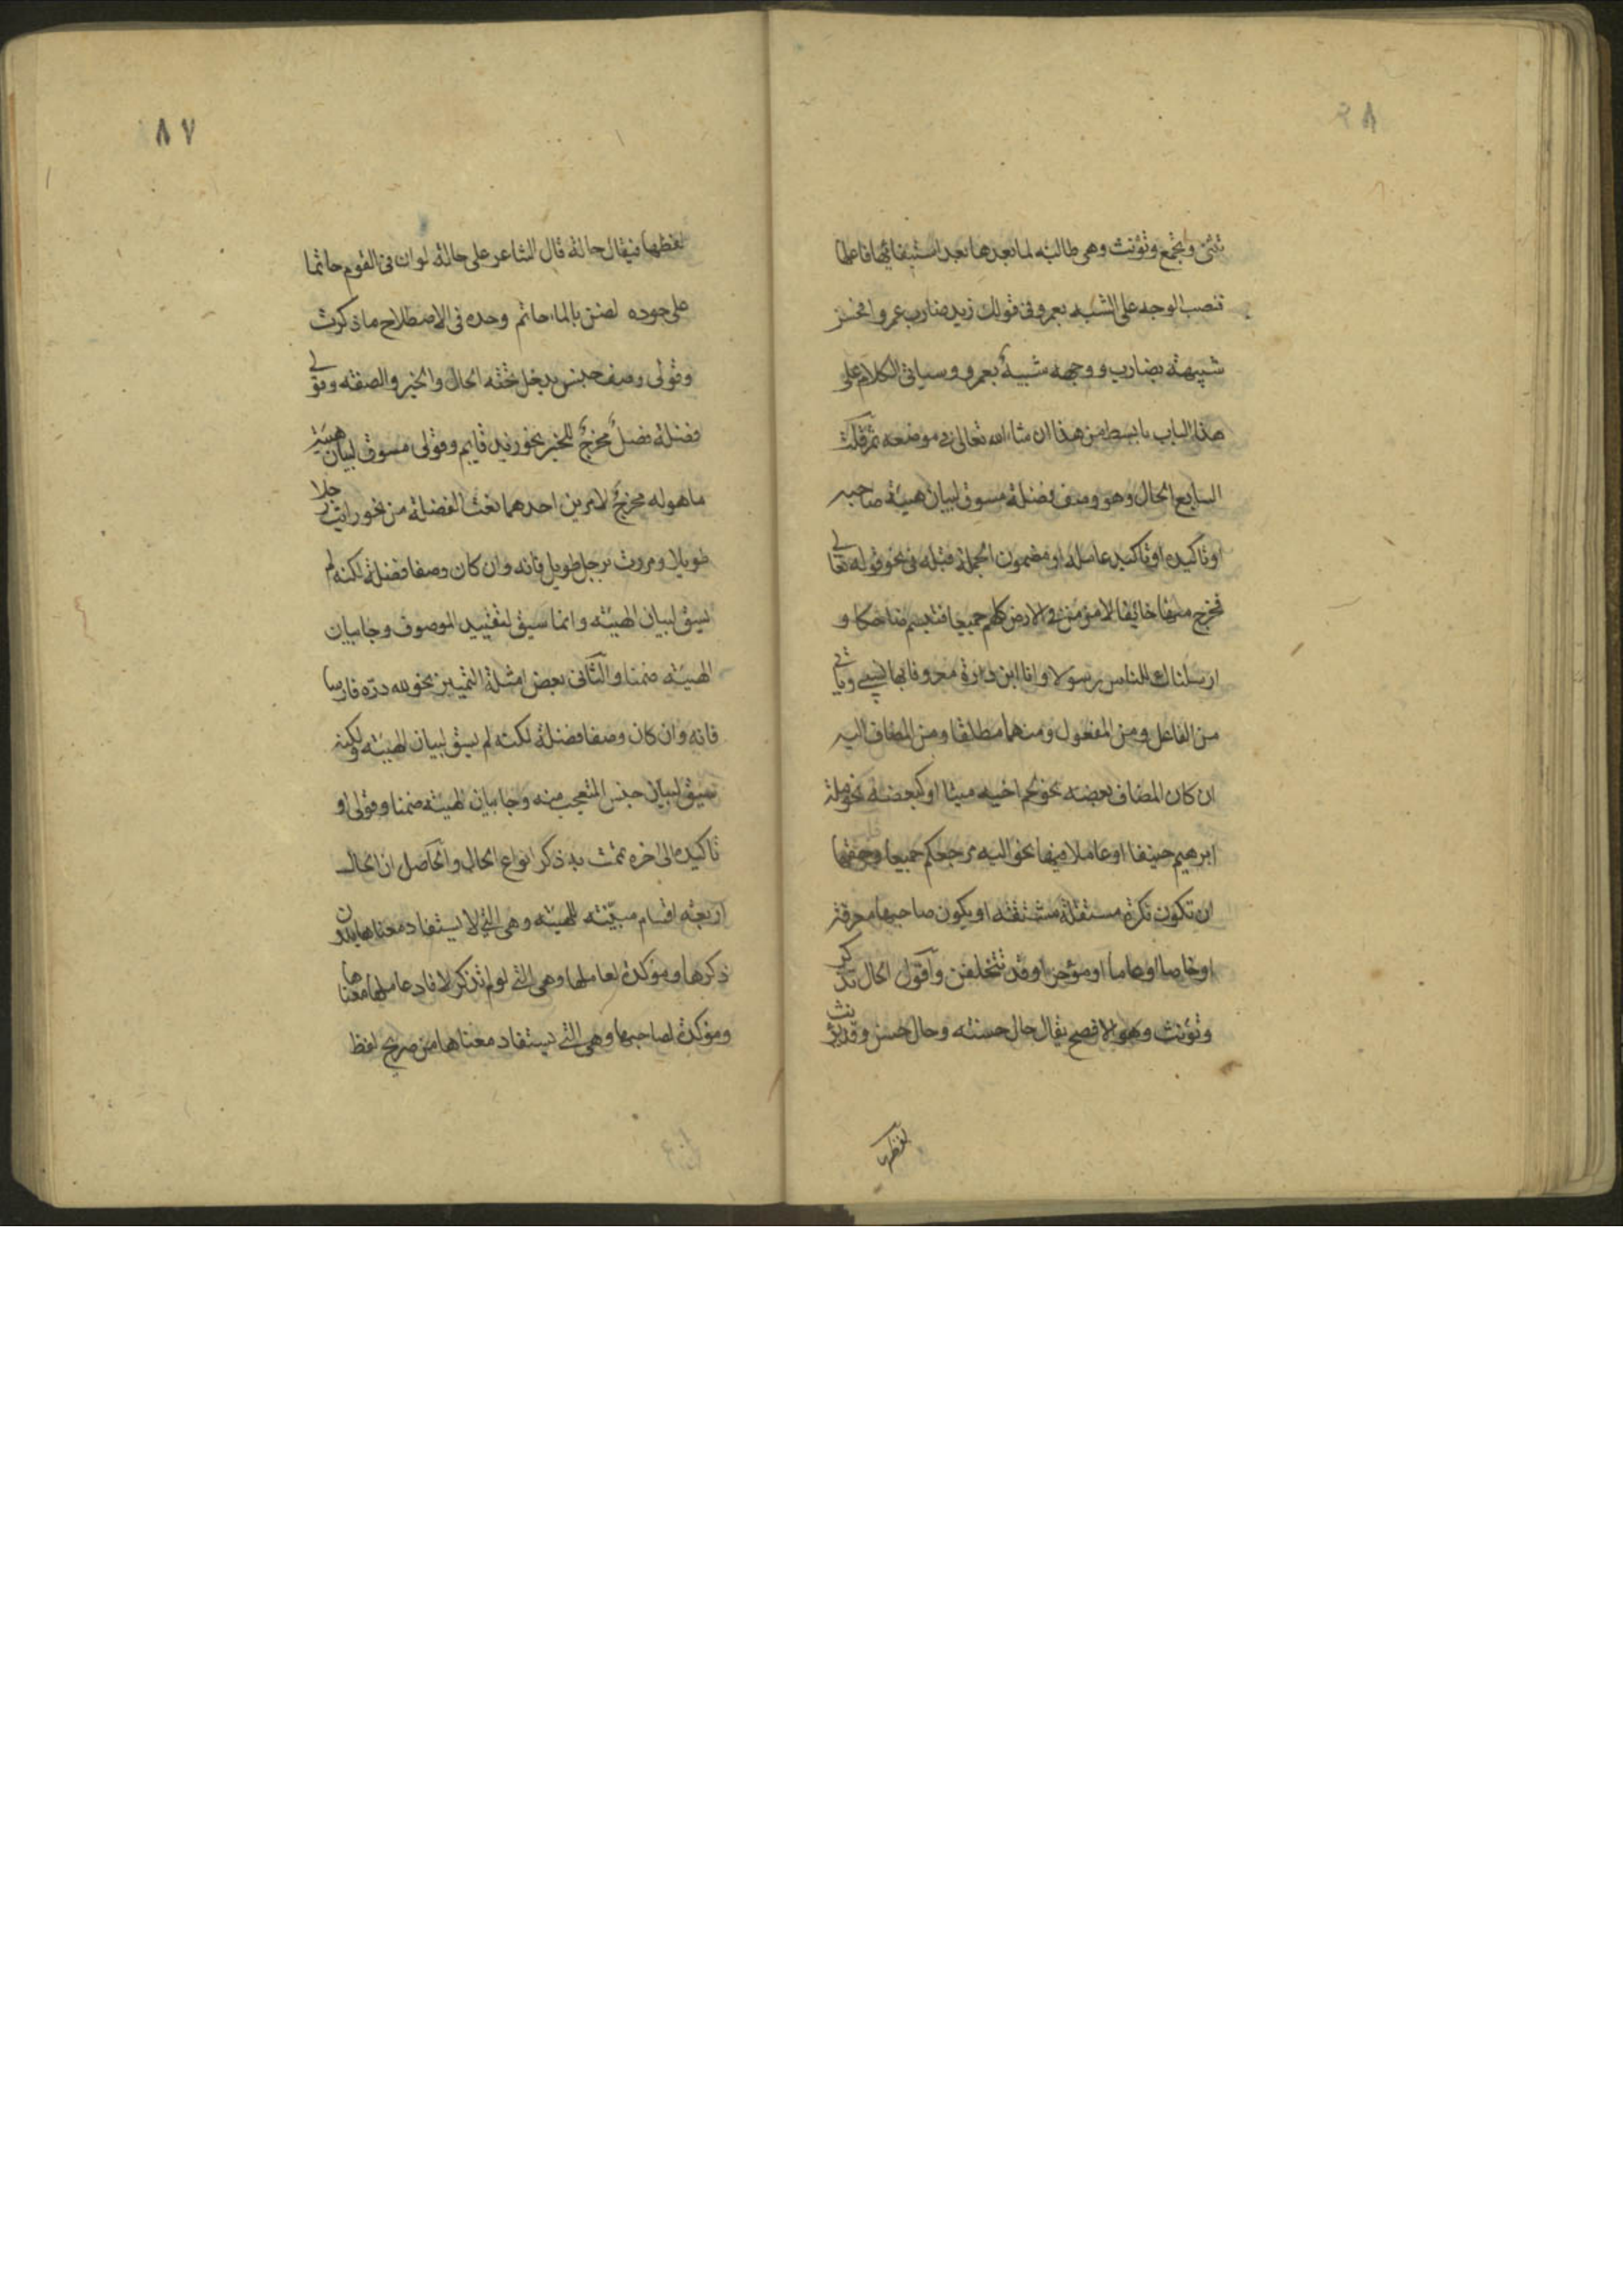 تثنى وتجمع وتؤنث وهى طالبة لما بعدها بعد استيفائها فاعلها
تنصب الوجه على الشبه بعمرو فى قولك زيد ضارب عمروا فحسن
شبيهة بضارب ووجهه شبيهٌ بعمرو وسياتى الكلام على
هذا الباب بابسط من هذا ان شاء الله تعالى فى موضعه ثم قلت
السابع الحال وهو وصف فضلة مسوق لبيان هيئة صاحبه
او تاكيده او تاكيد عامله او مضمون الجملة قبله فى نحو قوله تعالى
فخرج منها خائفا لامن من فى الارض كلهم جميعا فتبسم ضاحكا و
ارسلناك للناس رسولا وانا ابن دارة معروفا بها نسبى وياتى
من الفاعل ومن المفعول ومنهما مطلقا ومن المضاف اليه
ان كان المضاف بعضه نحو لحم اخيه ميتا او كبعضه نحو ملة
ابرهيم حنيفا او عاملا فيها نحو اليه مرجعكم جميعا وحقها
ان تكون نكرة مستقلة مشتقة او يكون صاحبها معرفة
او خاصا او عاما او مؤخرا وقد تتخلفن واقول الحال تذكر
وتؤنث وهو الافصح يقال حال حسنة وحال حسن وقد يؤنث
لفظها
٨٧
لفظها فيقال حالة قال الشاعر على حالة لو ان فى القوم حاتما
على جوده لضن بالماء حاتم وحده فى الاصطلاح ما ذكرت
وقولى وصف جنس يدخل تحته الحال والخبر والصفة وقولى
فضلة فصلٌ مخرجٌ للخبر نحو زيد قايم وقولى مسوق لبيان هيئة
ما هو له مخرجٌ لامرين احدهما نعت الفضلة من نحو رايت رجلا
طويلا ومررت برجل طويل فانه وان كان وصفا فضلة لكنه لم
يسق لبيان الهيئة وانما سيق لتقييد الموصوف وجا بيان
الهيئة ضمنا والثانى بعض امثلة التمييز نحو لله درّه فارسا
فانه وان كان وصفا فضلة لكنه لم يسق لبيان الهيئة ولكنه
سيق لبيان جنس المتعجب منه وجا بيان الهيئة ضمنا وقولى او
تاكيده الى اخره تمت به ذكر انواع الحال والحاصل ان الحال
اربعة اقسام مبيّنة للهيئة وهى التى لا يستفاد معناها بدون
ذكرها ومؤكدة لعاملها وهى التى لو لم تذكر لافاد عاملها معناها
ومؤكدة لصاحبها وهى التى يستفاد معناها من صريح لفظ